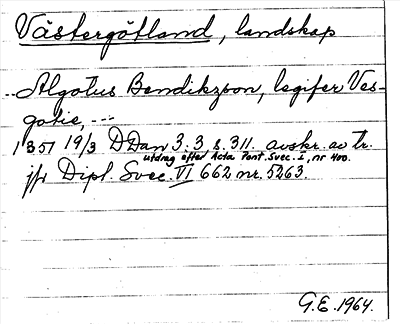 Västergötland, landskap
..Algotus Bendikzson, legifer Ves-
gotie, ---
1351 19/3 DDan 3.3 s. 311. avskr. av tr.
utdrag efter Acta Pont. Svec. I, nr 400.
jfr Dipl. Svec. VI 662 nr. 5263.
G.E. 1964.